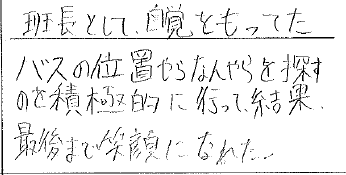 班長として、自覚をもってた
バスの位置やらなんやらを探す
のを積極的に行って、結果、
最後まで笑顔になれた。